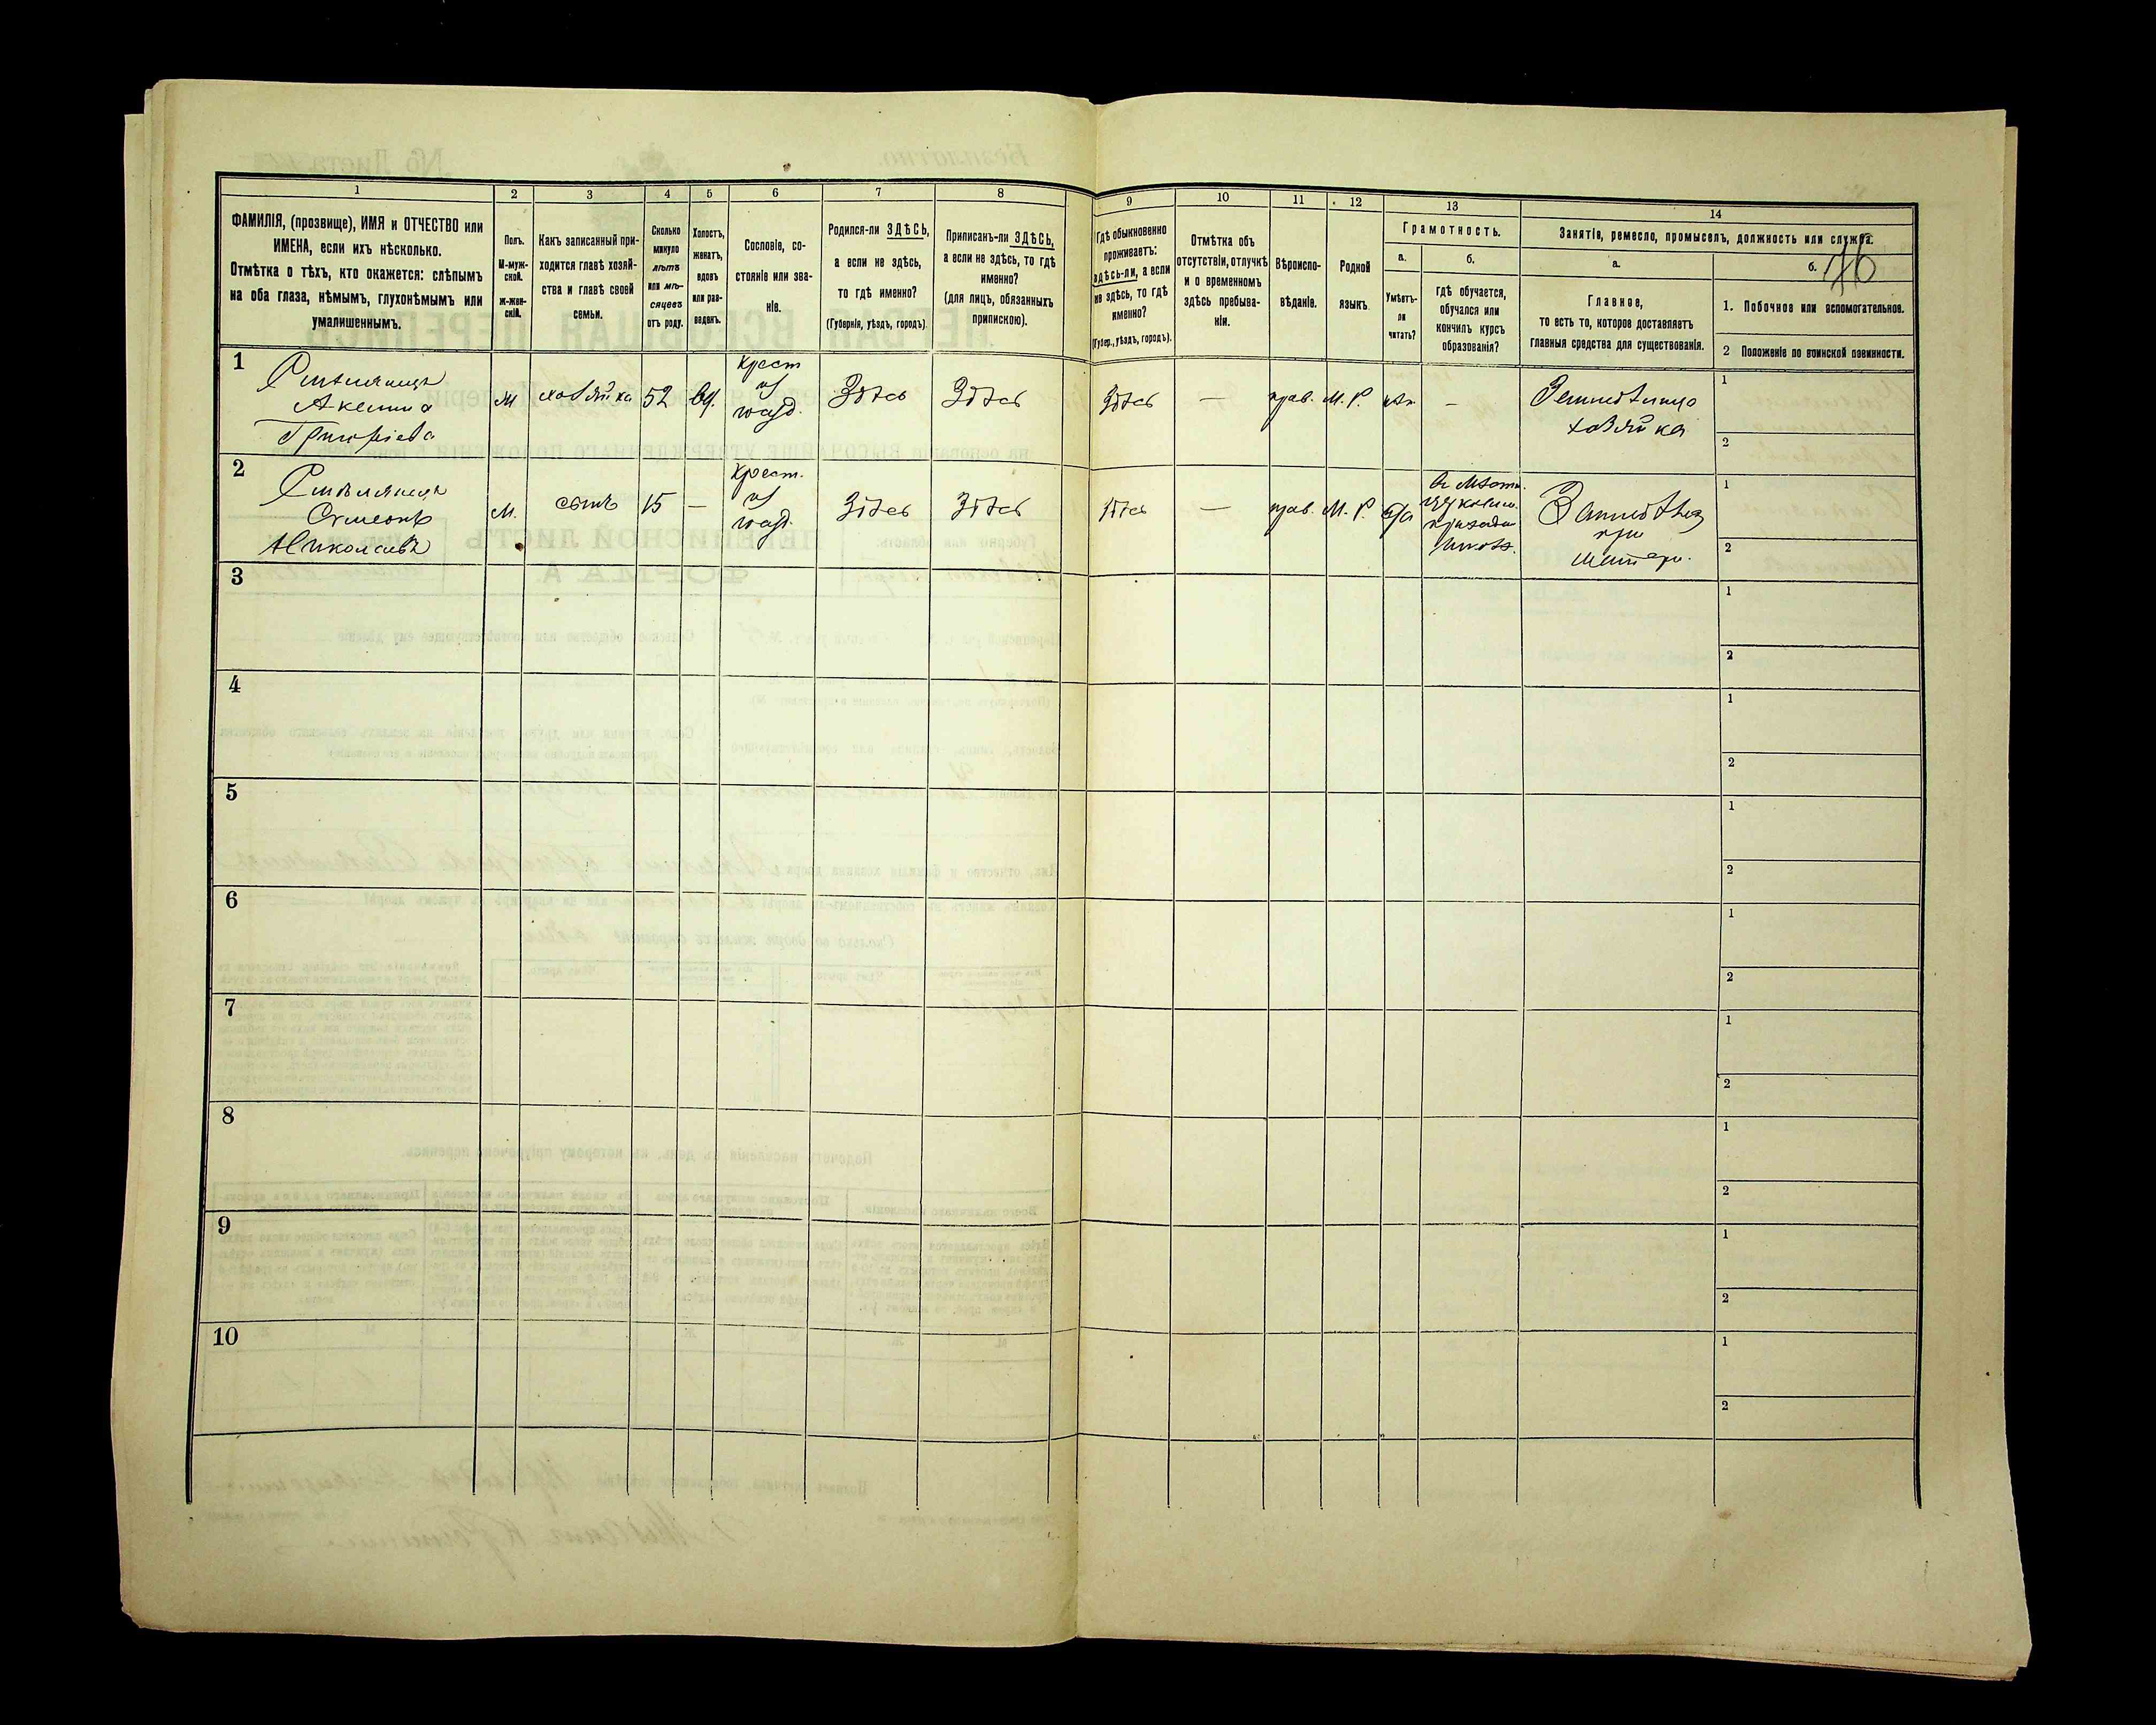 76
1
2
3
4
5
6
7
8
9
10
11
12
13
14
ФАМИЛІЯ, (прозвище), ИМЯ и ОТЧЕСТВО или
ИМЕНА, если ихъ нѣсколько.
Отмѣтка о тѣхъ, кто окажется: слѣпымъ
на оба глаза, нѣмымъ, глухонѣмымъ или
умалишеннымъ.
Полъ.
М-муж-
ской.
Ж-жен-
скій.
Какъ записанный при-
ходится главѣ хозяй-
ства и главѣ своей
семьи.
Сколько
минуло
лѣтъ
или мѣ-
сяцевъ
отъ роду.
Холостъ,
женатъ,
вдовъ
или раз-
веденъ.
Сословіе, со-
стояніе или зва-
ніе.
Родился-ли ЗДѢСЬ,
а если не здѣсь,
то гдѣ именно?
(Губернія, уѣздъ, городъ).
Приписанъ-ли ЗДѢСЬ,
а если не здѣсь, то гдѣ
именно?
(для лицъ, обязанныхъ
припискою).
Гдѣ обыкновенно
проживаетъ:
здѣсь-ли, а если
не здѣсь, то гдѣ
именно?
(Губер., уѣздъ, городъ).
Отмѣтка объ
отсутствіи, отлучкѣ
и о временномъ
здѣсь пребыва-
ніи.
Вѣроиспо-
вѣданіе.
Родной
языкъ.
Грамотность.
а.
Умѣетъ-
ли
читать?
б.
гдѣ обучается,
обучался или
кончилъ курсъ
образованія?
Занятіе, ремесло, промыселъ, должность или служба.
а.
Главное,
то есть то, которое доставляетъ
главныя средства для существованія.
б.
1. Побочное или вспомогательное.
2 Положеніе по воинской повинности.
1
Аксинія
Григоріева
хозяйка
52
вд.
крест
Здѣсь
Здѣсь
Здѣсь
—
прав.
М. Р.
нѣт
—
хозяйка
1
2
2
Симеонъ
Николаевъ
М.
сынъ
15
—
крест.
Здѣсь
Здѣсь
Здѣсь
—
прав.
М. Р.
да
школѣ.
при
матери.
1
2
3
1
2
4
1
2
5
1
2
6
1
2
7
1
2
8
1
2
9
1
2
10
1
2